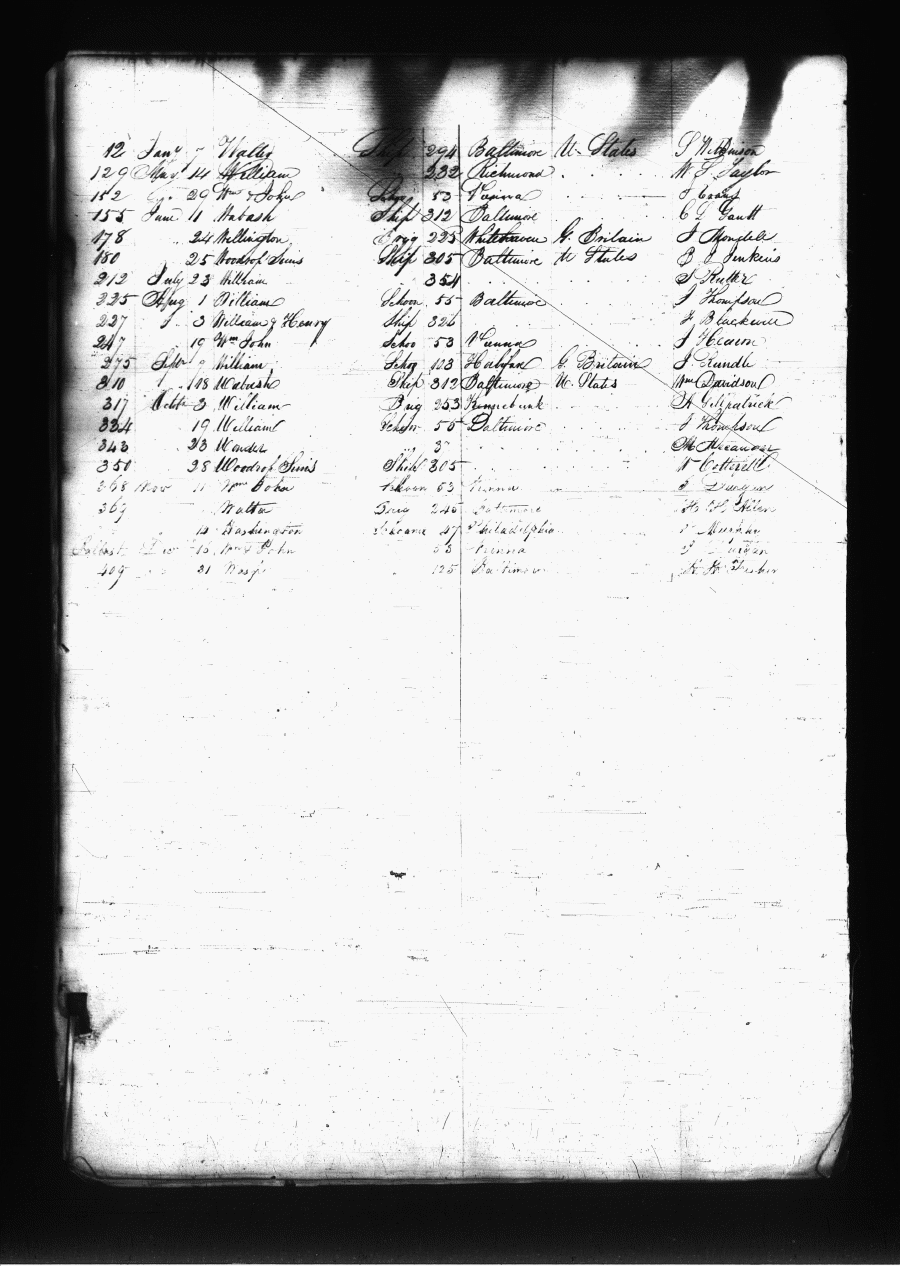 12 Jany Walter Ship 294 Baltimore U. States S Wilkinson
129 May 14 William 232 Richmond W S Taylor
152 29 Wm & John Scho 53 Vienna J Evans
155 June 11 Wabash Ship 312 Baltimore C L Gantt
178 24 Wellington Brig 225 Whitehaven G. Britain J Mondele
180 25 Woodrop Sims Ship 305 Baltimore U States B Jenkins
212 July 23 William 354 S Rutter
225 Aug 1 William Schoon 55 Baltimore J Thompson
227 3 William & Henry Ship 326
247 19 Wm John Schoo 53 Vienna J Hearon
275 Septr 9 William Schoo 103 Halifax G. Britain J Rundle
310 18 Wabash Ship 312 Baltimore U. States Wm Davidson
317 Octr 3 William Brig 253 Kennebunk Gilpatrick
334 19 William Schoon 55 Baltimore J Thompson
343 23 Wonder 37 Alexander
350 28 Woodrop Sims Ship 305 W Cotterell
368 Nov 11 Wm John Schoon 53 Vienna Durgan
369 Walter Brig 246 Baltimore Allen
12 Washington Schoone 47 Philadelphia Murphy
Ballast Dec 15 Wm & John 53 Vienna Durgan
409 21 Wasp 125 Baltimore Fisher